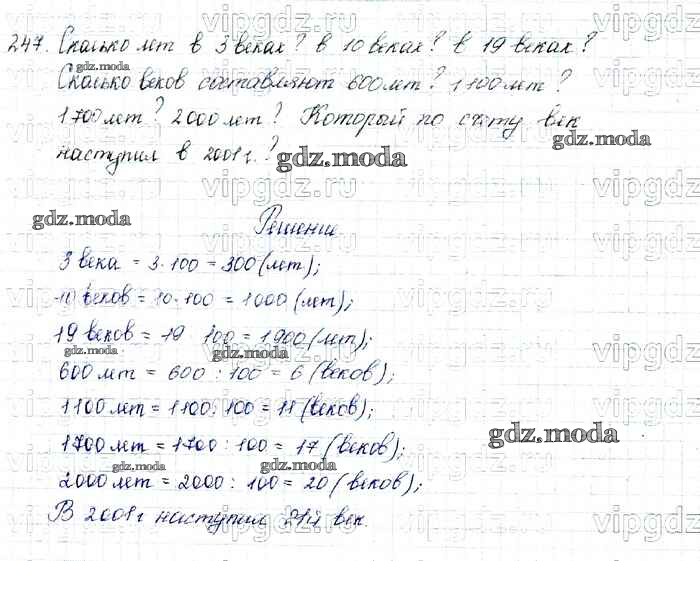 247. Сколько лет в 3 веках? в 10 веках? в 19 веках?
Сколько веков составляют 600 лет? 1100 лет?
1700 лет? 2000 лет? Который по счёту век
наступил в 2001 г.?
Решение
3 века = 3·100 = 300 (лет);
10 веков = 10·100 = 1000 (лет);
19 веков = 19 100 = 1900 (лет);
600 лет = 600 : 100 = 6 (веков);
1100 лет = 1100 : 100 = 11 (веков);
1700 лет = 1700 : 100 = 17 (веков);
2000 лет = 2000 : 100 = 20 (веков);
В 2001 г наступил 21й век.
gdz.moda
vipgdz.ru